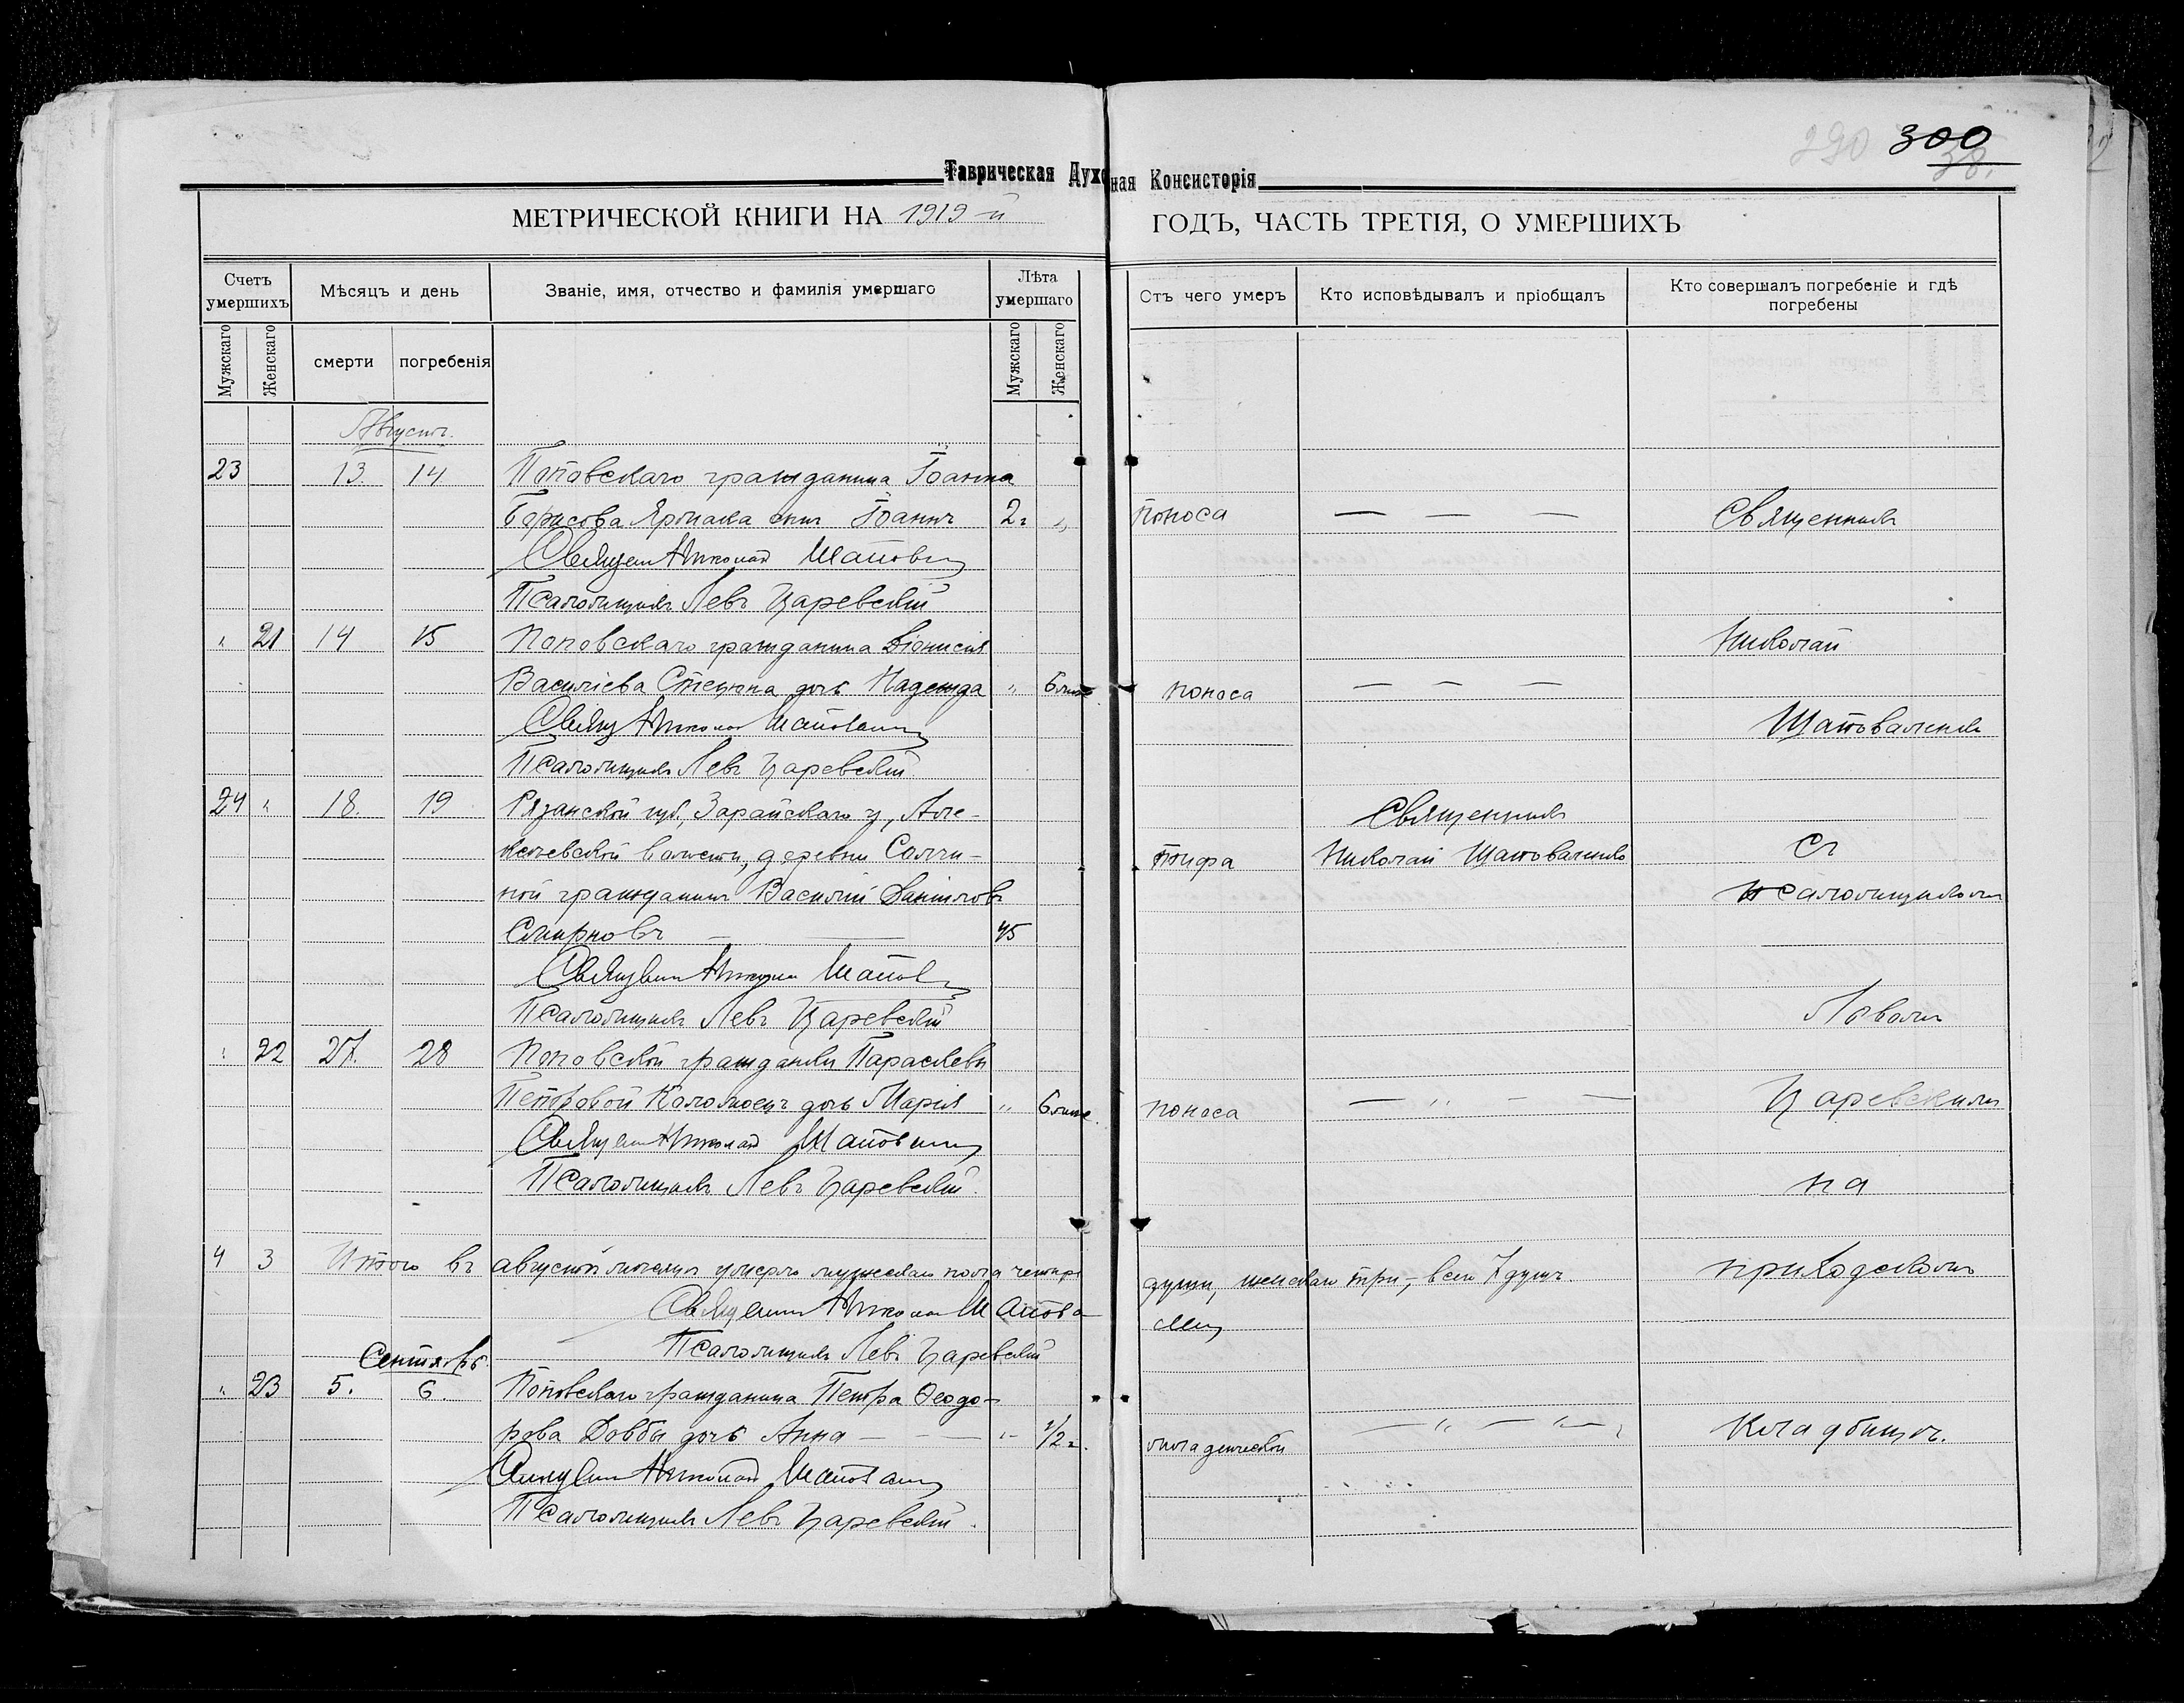 300
290
38.
Таврическая Духовная Консисторія
МЕТРИЧЕСКОЙ КНИГИ НА 1919-й ГОДЪ, ЧАСТЬ ТРЕТІЯ, О УМЕРШИХЪ
Счетъ умершихъ
Мѣсяцъ и день
Званіе, имя, отчество и фамилія умершаго
Лѣта умершаго
Отъ чего умеръ
Кто исповѣдывалъ и пріобщалъ
Кто совершалъ погребеніе и гдѣ погребены
Мужскаго
Женскаго
смерти
погребенія
Мужскаго
Женскаго
Августъ.
23 13. 14 Поповскаго гражданина Іоанна
Борисова сынъ Іоаннъ 2 г. „ поноса — — — Священникъ
Священ Николай Шапов
Псаломщикъ Левъ Царевскій
„ 21 14 15 Поповскаго гражданина Діонисія Николай
Василіева Стецюна дочь Надежда „ 6 поноса — — —
Свящ Николай Шаповал Шаповаленко
Псаломщикъ Левъ Царевскій.
24 „ 18. 19 Рязанской губ., Зарайскаго у., Священникъ
волости, деревни тифа Николай Шаповаленко Съ
ной гражданинъ Василій Даніиловъ псаломщикомъ
Смирновъ — — 45
Священ Николай Шапов
Псаломщикъ Левъ Царевскій Львомъ
„ 22 27. 28 Поповской гражданки Параскевы
Петровой дочь Марія „ 6 поноса — „ — — Царевскимъ
Священ Николай Шаповал
Псаломщикъ Левъ Царевскій. на
4 3 Итого въ августѣ мѣсяцѣ умерло мужскаго пола четыре души, женскаго три, — всего 7 душъ. приходскомъ
Священ Николай Шапова
Псаломщикъ Левъ Царевскій
Сентябрь.
„ 23 5. 6. Поповскаго гражданина Петра Ѳеодо-
рова Довбы дочь Анна — — — „ 1/2 г. младенческой — „ — „ — кладбищѣ.
Священ Николай Шаповал
Псаломщикъ Левъ Царевскій.